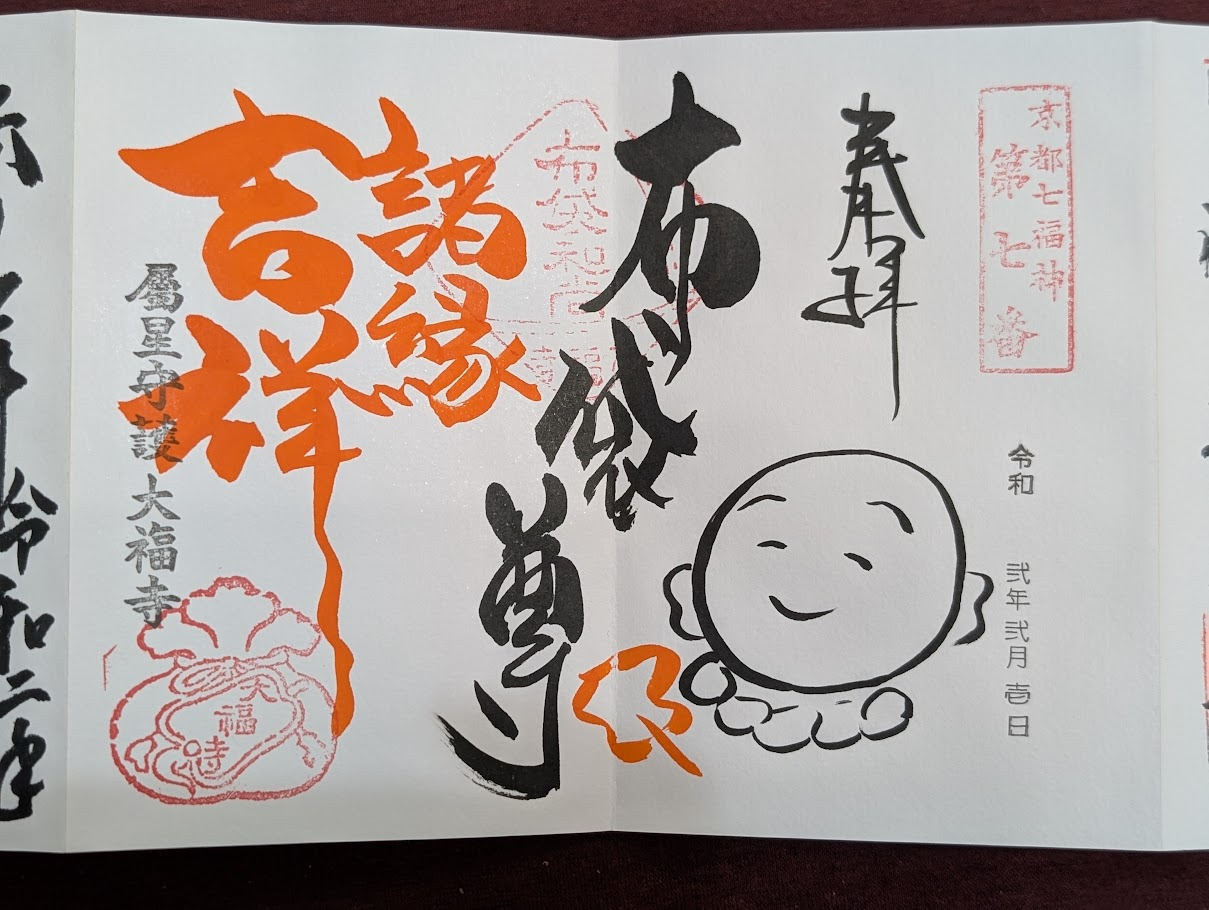 京都七福神
第七番
奉拝
令和 弐年弐月壱日
布袋尊
布袋和尚
諸縁
吉祥
属星守護 大福寺
大福寺
令和二年